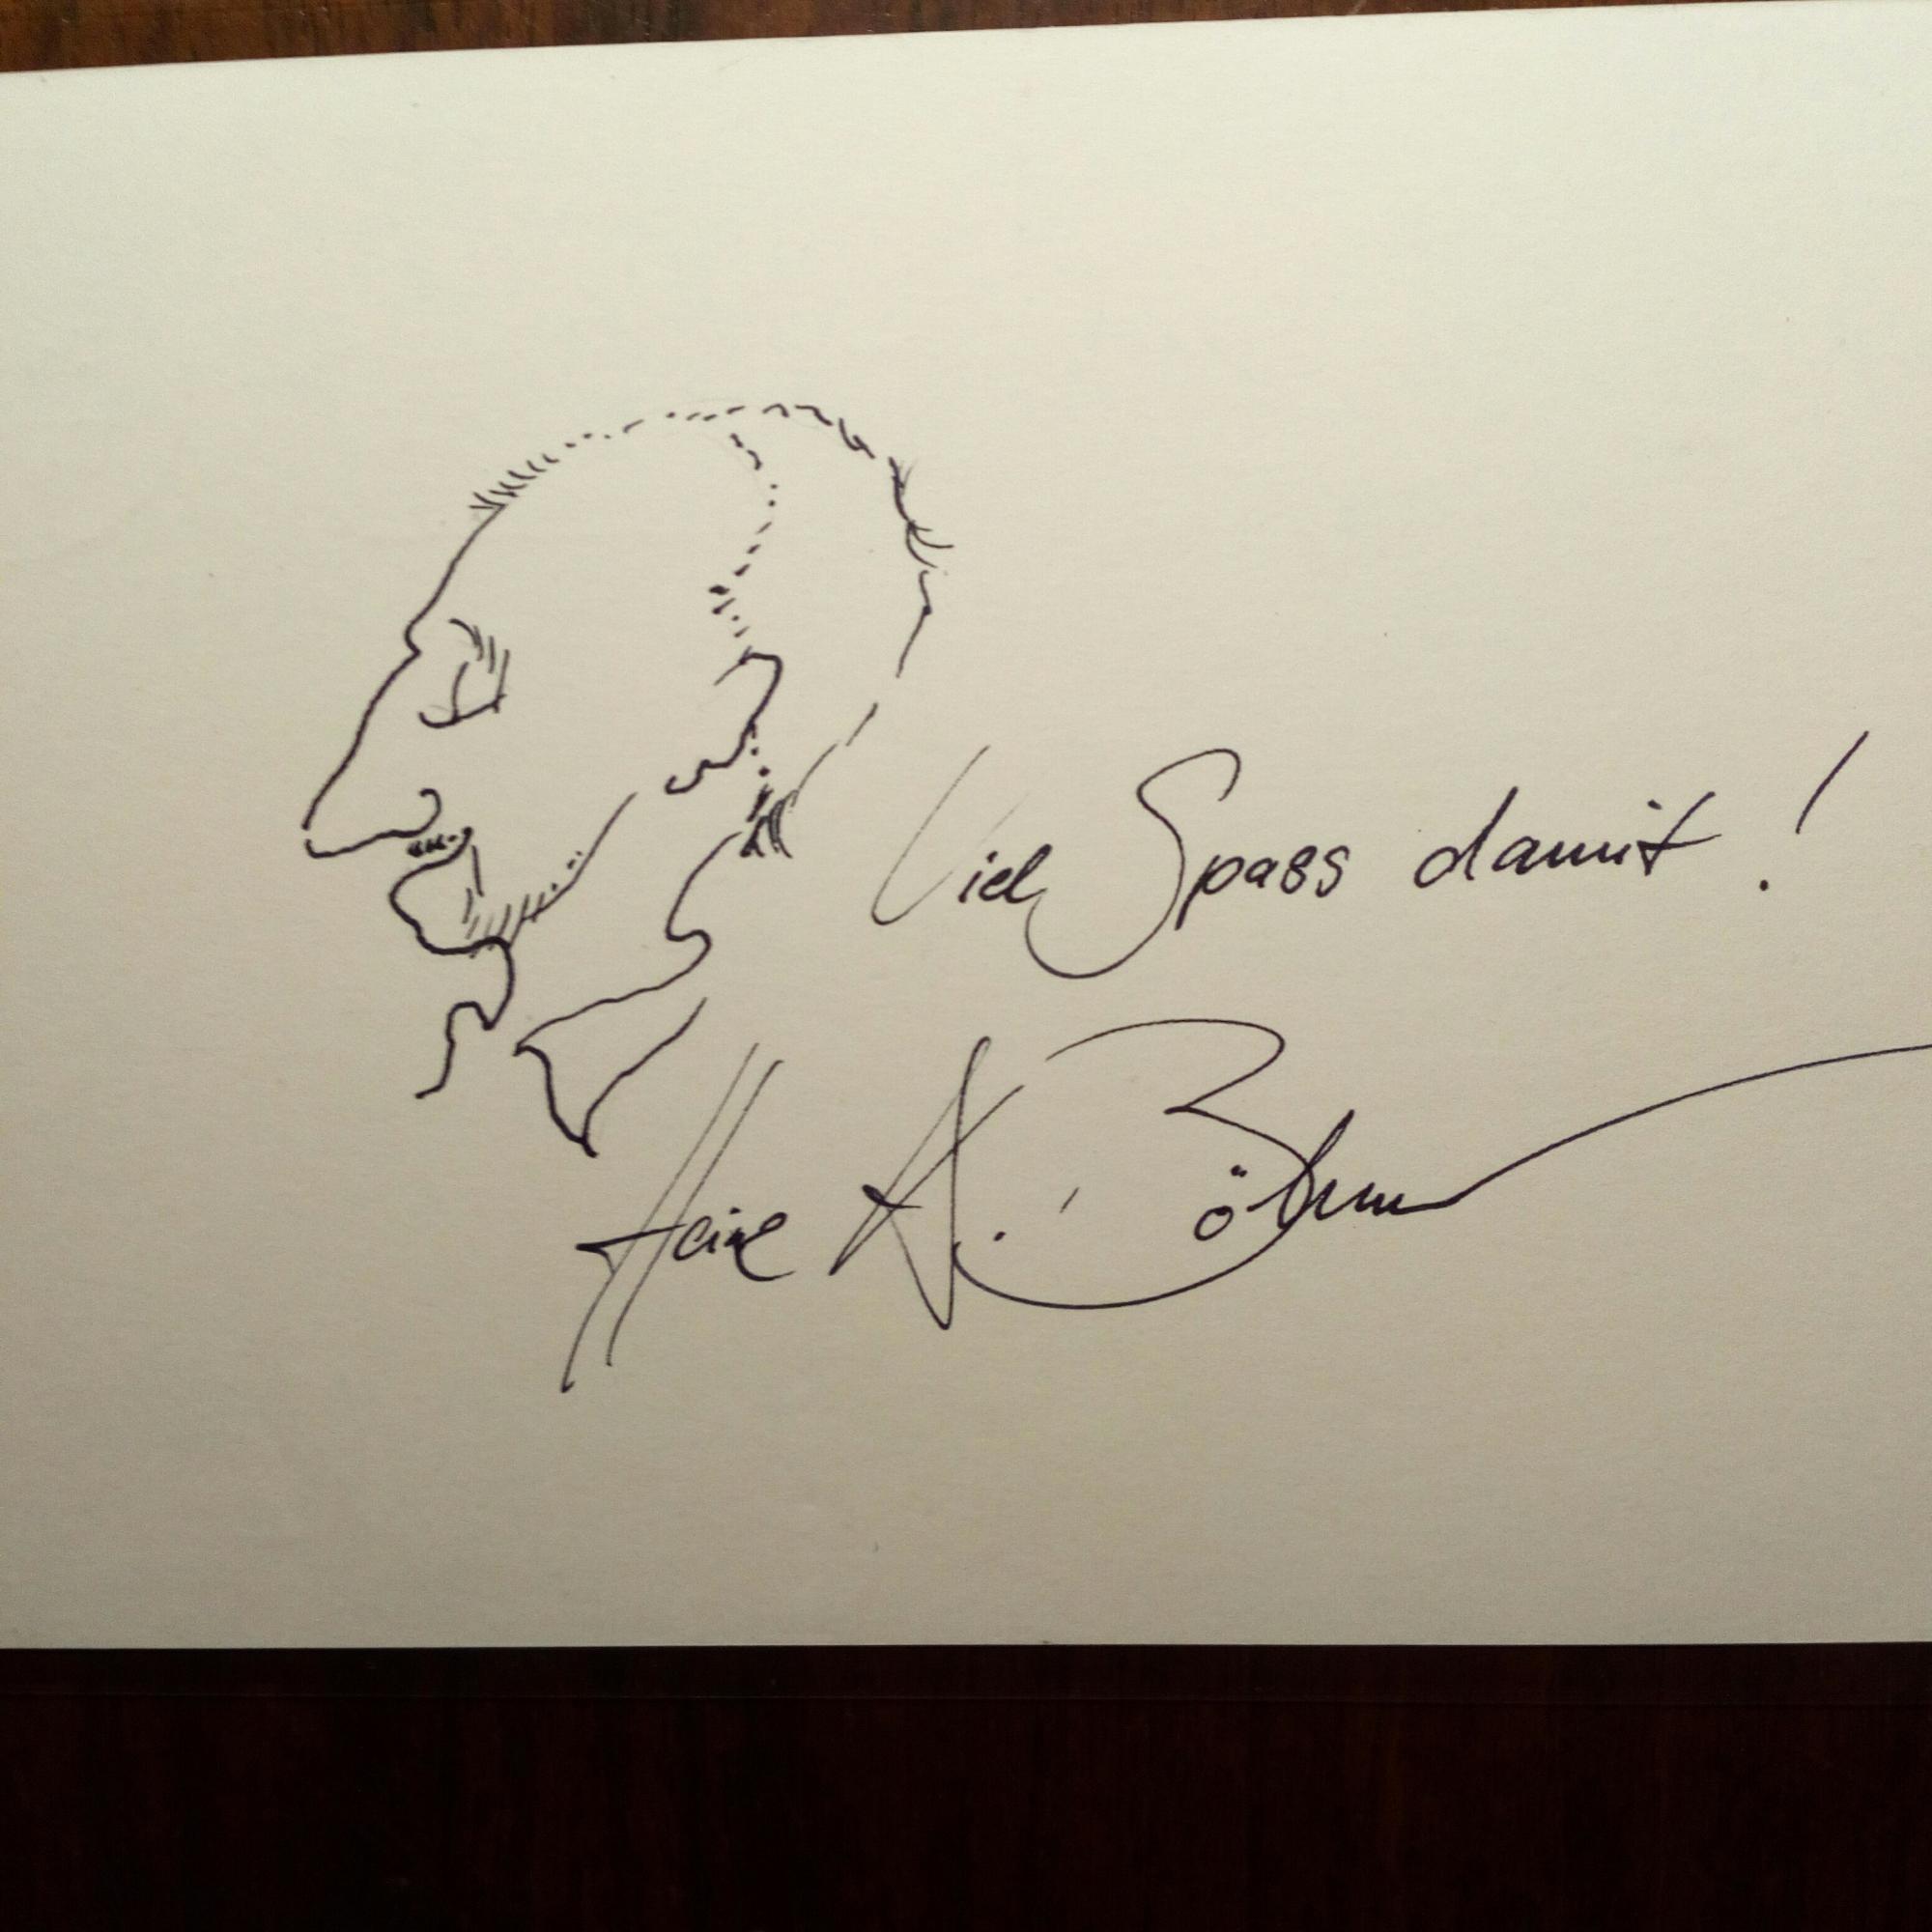 Viel Spass damit!
Heinz A. Böhm